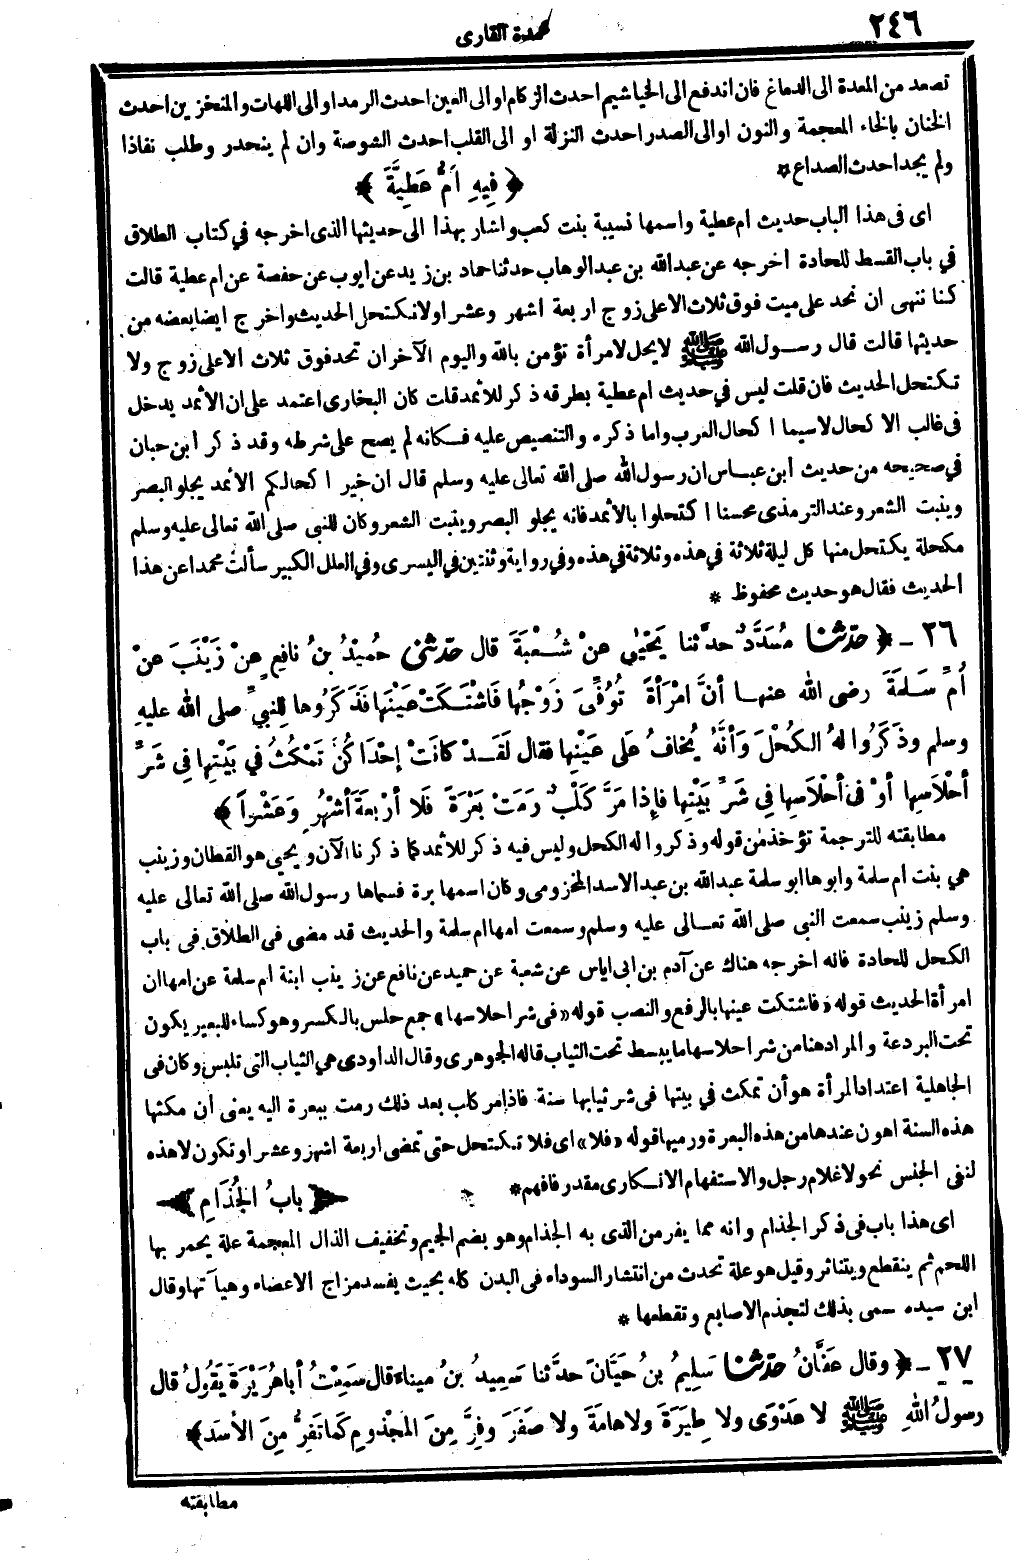 ٢٤٦
عمدة القارى
تصعد من المعدة الى الدماغ فان اندفع الى الخياشيم احدث الزكام او الى العين احدث الرمد او الى اللهات والمنخزين احدث
الخنان بالخاء المعجمة والنون او الى الصدر احدث النزلة او الى القلب احدث الشوصة وان لم ينحدر وطلب نفاذا
ولم يجد احدث الصداع *
﴿ فِيهِ اُمُّ عَطِيَّةَ ﴾
اى فى هذا الباب حديث ام عطية واسمها نسيبة بنت كعب واشار بهذا الى حديثها الذى اخرجه في كتاب الطلاق
في باب القسط للحادة اخرجه عن عبد الله بن عبد الوهاب حدثنا حماد بن زيد عن ايوب عن حفصة عن ام عطية قالت
كنا ننهى ان نحد على ميت فوق ثلاث الا على زوج اربعة اشهر وعشرا ولا نكتحل الحديث واخرج ايضا بعضه من
حديثها قالت قال رسول الله ﷺ لا يحل لامرأة تؤمن بالله واليوم الآخر ان تحد فوق ثلاث الا على زوج ولا
تكتحل الحديث فان قلت ليس في حديث ام عطية بطرقه ذكر للأثمد قلت كان البخارى اعتمد على ان الأثمد يدخل
فى غالب الاكحال لاسيما اكحال العرب واما ذكره والتنصيص عليه فكانه لم يصح على شرطه وقد ذكر ابن حبان
في صحيحه من حديث ابن عباس ان رسول الله صلى الله تعالى عليه وسلم قال ان خير اكحالكم الأثمد يجلو البصر
وينبت الشعر وعند الترمذى محسنا اكتحلوا بالأثمد فانه يجلو البصر وينبت الشعر وكان للنبى صلى الله تعالى عليه وسلم
مكحلة يكتحل منها كل ليلة ثلاثة في هذه وثلاثة في هذه وفي رواية وثنتين في اليسرى وفي العلل الكبير سألت محمدا عن هذا
الحديث فقال هو حديث محفوظ *
٢٦ - ﴿ حَدَّثَنَا مُسَدَّدٌ حدَّثنا يَحْيٰى عنْ شُعْبَةَ قال حَدَّثَنِي حُمَيْدُ بنُ نافِعٍ عنْ زَيْنَبَ عنْ
اُمِّ سَلَمَةَ رضى الله عنها أنَّ امْرَأةً تُوُفِّىَ زَوْجُها فَاشْتَكَتْ عَيْنَها فَذَكَرُوها لِلنبيِّ صلى الله عليه
وسلم وذَكَرُوا لهُ الكُحْلَ وَأنَّهُ يُخافُ عَلَى عَيْنِها فقال لَقَدْ كانَتْ إحْدَاكُنَّ تَمْكُثُ في بَيْتِها فِى شَرِّ
أحْلَاسِها أوْ فى أحْلاسِها فِي شَرِّ بَيْتِها فإذا مَرَّ كَلْبٌ رَمَتْ بَعْرَةً فَلا أرْبعَةَ أشْهُرٍ وَعَشْراً ﴾
مطابقته للترجمة تؤخذ من قوله وذكروا له الكحل وليس فيه ذكر للأثمد كما ذكرنا الآن ويحيى هو القطان وزينب
هي بنت ام سلمة وابوها ابو سلمة عبد الله بن عبد الاسد المخزومى وكان اسمها برة فسماها رسول الله صلى الله تعالى عليه
وسلم زينب سمعت النبى صلى الله تعالى عليه وسلم وسمعت امها ام سلمة والحديث قد مضى فى الطلاق فى باب
الكحل للحادة فانه اخرجه هناك عن آدم بن ابى اياس عن شعبة عن حميد عن نافع عن زينب ابنة ام سلمة عن امها ان
امرأة الحديث قوله «فاشتكت عينها بالرفع والنصب قوله «فى شر احلاسها» جمع حلس بالكسر وهو كساء للبعير يكون
تحت البردعة والمراد هنا من شر احلاسها ما يبسط تحت الثياب قاله الجوهرى وقال الداودى هي الثياب التى تلبس وكان فى
الجاهلية اعتداد المرأة هو أن تمكث في بيتها فى شر ثيابها سنة فاذا مر كلب بعد ذلك رمت ببعرة اليه يعنى ان مكثها
هذه السنة اهون عندها من هذه البعرة ورميها قوله «فلا» اى فلا تكتحل حتى تمضى اربعة اشهر وعشر او تكون لا هذه
لنفى الجنس نحو لا غلام رجل والاستفهام الانكارى مقدر فافهم *
﴿ بابُ الجُذَامِ ﴾
اى هذا باب فى ذكر الجذام وانه مما يفر من الذى به الجذام وهو بضم الجيم وتخفيف الذال المعجمة علة يحمر بها
اللحم ثم ينقطع ويتناثر وقيل هو علة تحدث من انتشار السوداء فى البدن كله بحيث يفسد مزاج الاعضاء وهيآتها وقال
ابن سيده سمى بذلك لتجذم الاصابع وتقطعها *
٢٧ - ﴿ وقال عَفَّانُ حَدَّثَنَا سَلِيمُ بنُ حَيَّانَ حدَّثنا سَعِيدُ بنُ ميناء قال سَمِعْتُ أبا هُرَيْرَةَ يَقُولُ قال
رسولُ اللهِ ﷺ لا عَدْوَى ولا طِيَرَةَ ولا هامَةَ ولا صَفَرَ وفِرَّ مِنَ المَجْذومِ كَما تَفِرُّ مِنَ الأسَدِ ﴾
مطابقته